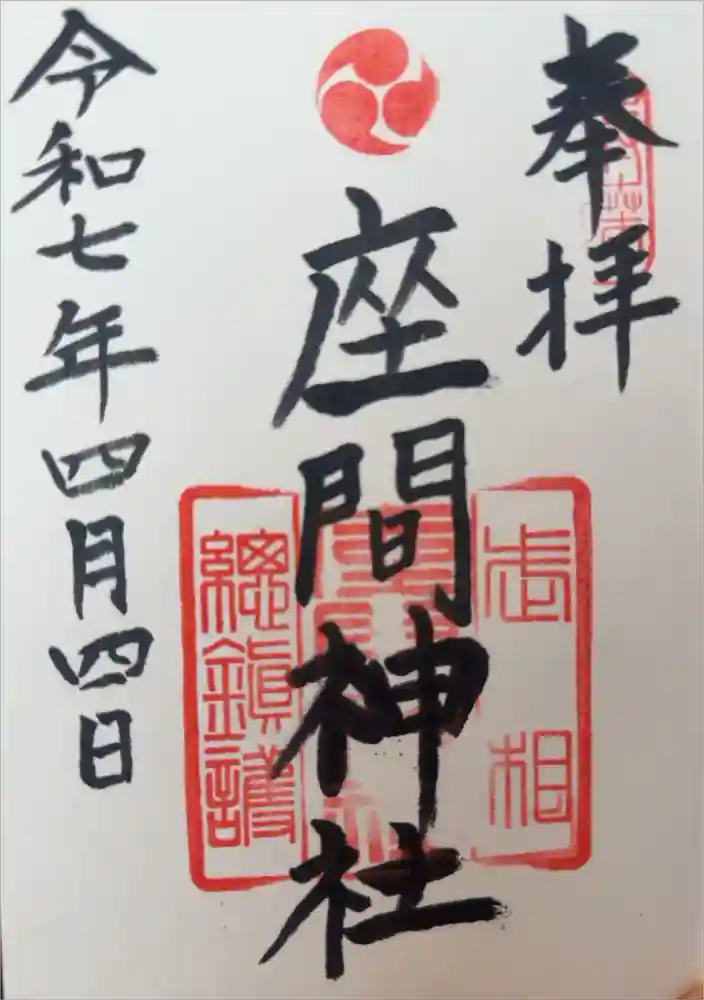 奉拝
座間神社
武相
總鎮護
令和七年四月四日